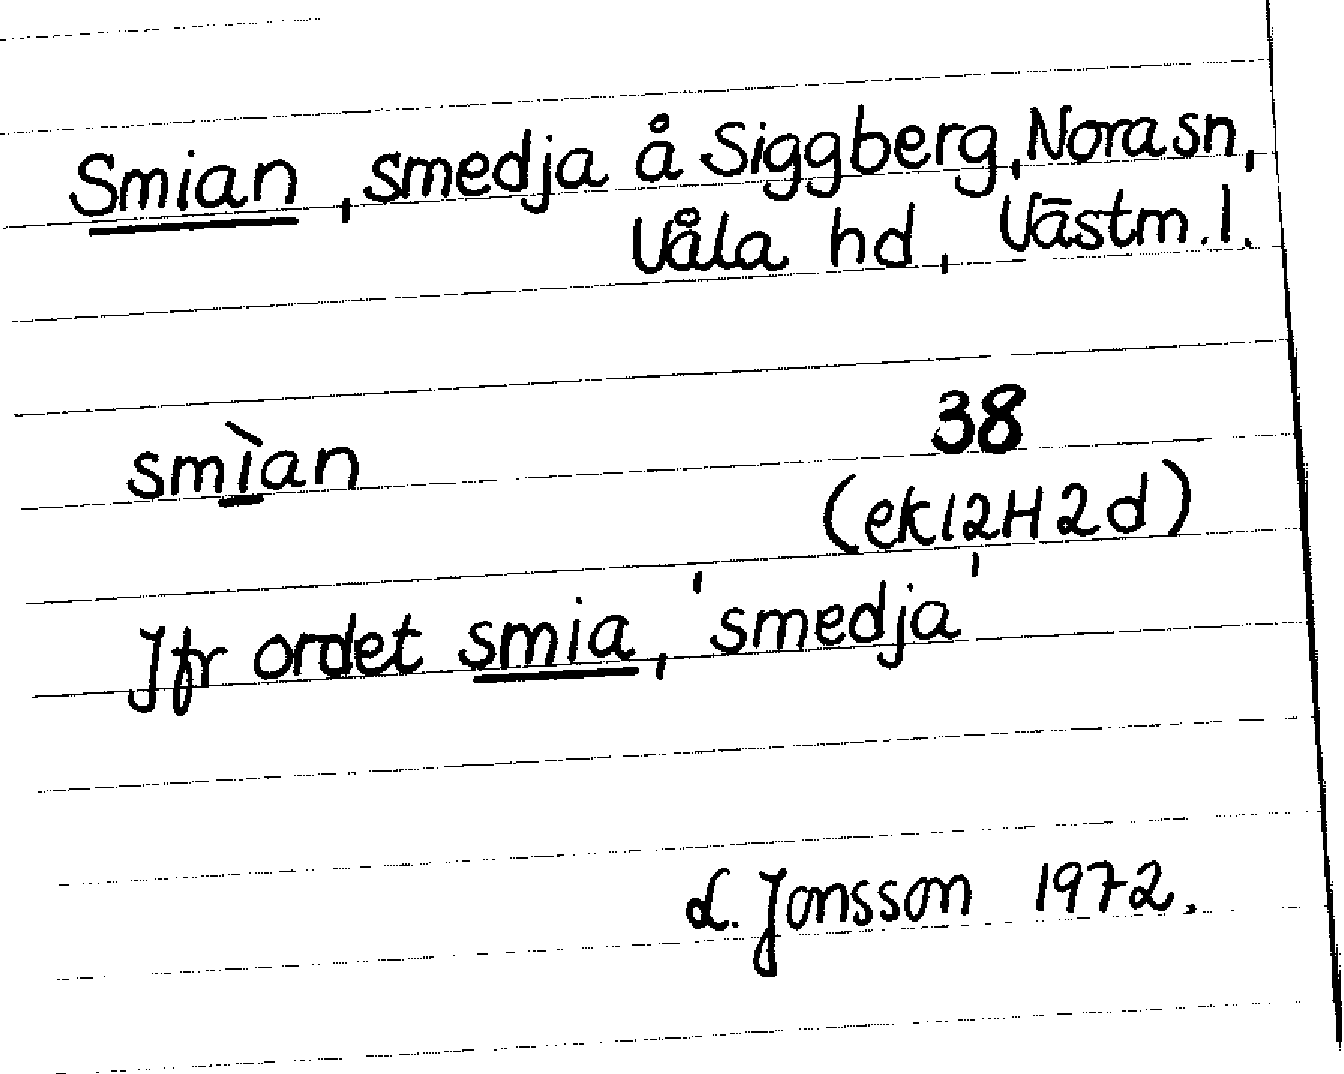 Smian, smedja å Siggberg, Nora sn,
Våla hd, Västm. l.
smìan 38
(ek 12H2d)
Jfr ordet smia, 'smedja'
L. Jonsson 1972.